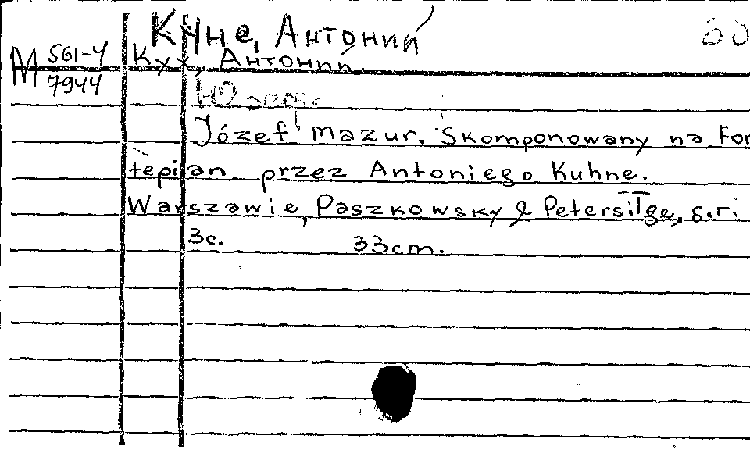 Куне, Антоний
М 561-4 Антоний.
7944
Józef mazur. Skomponowany na For
tepian przez Antoniego Kuhne.
Warszawie, Paszkowsky & Petersilge, s.r.
3c. 33cm.